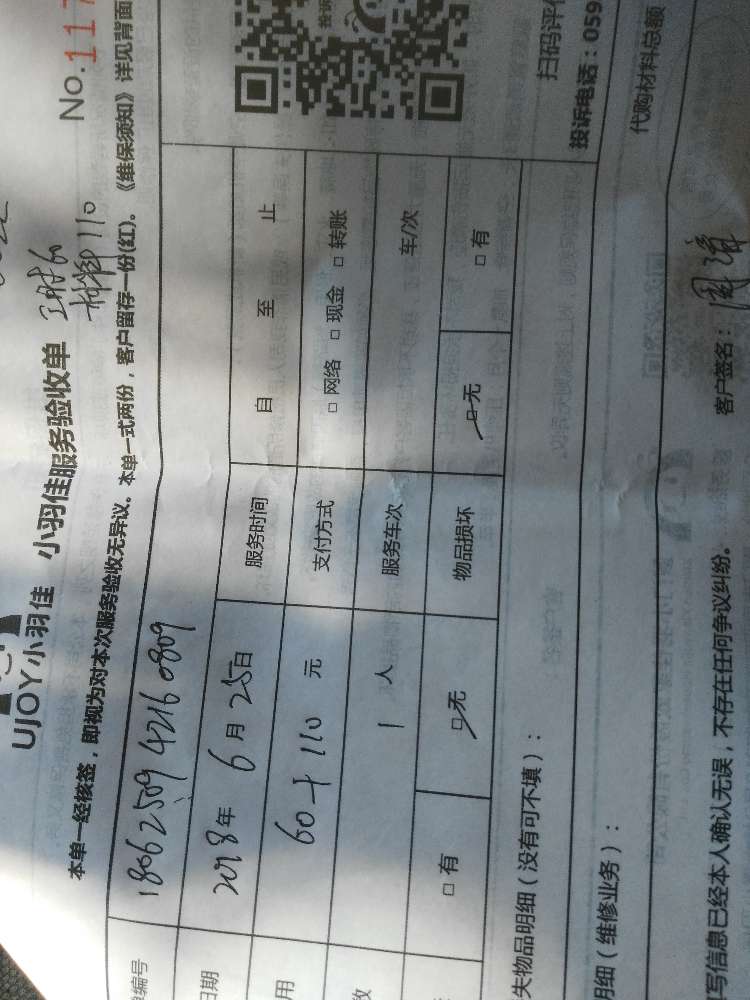 UJOY小羽佳 小羽佳服务验收单
工时60
材料110
No.117
本单一经核签，即视为对本次服务验收无异议。本单一式两份，客户留存一份(红)。《维保须知》详见背面
编号 1806250942160809
日期 2018年6月25日 服务时间 自 至 止
用 60+110 元 支付方式 □网络 □现金 □转账
数 1 人 服务车次 车/次
□有 □无 物品损坏 □无 □有
投诉
扫码评价
投诉电话：059
失物品明细（没有可不填）：
明细（维修业务）：
代购材料总额
写信息已经本人确认无误，不存在任何争议纠纷。 客户签名：